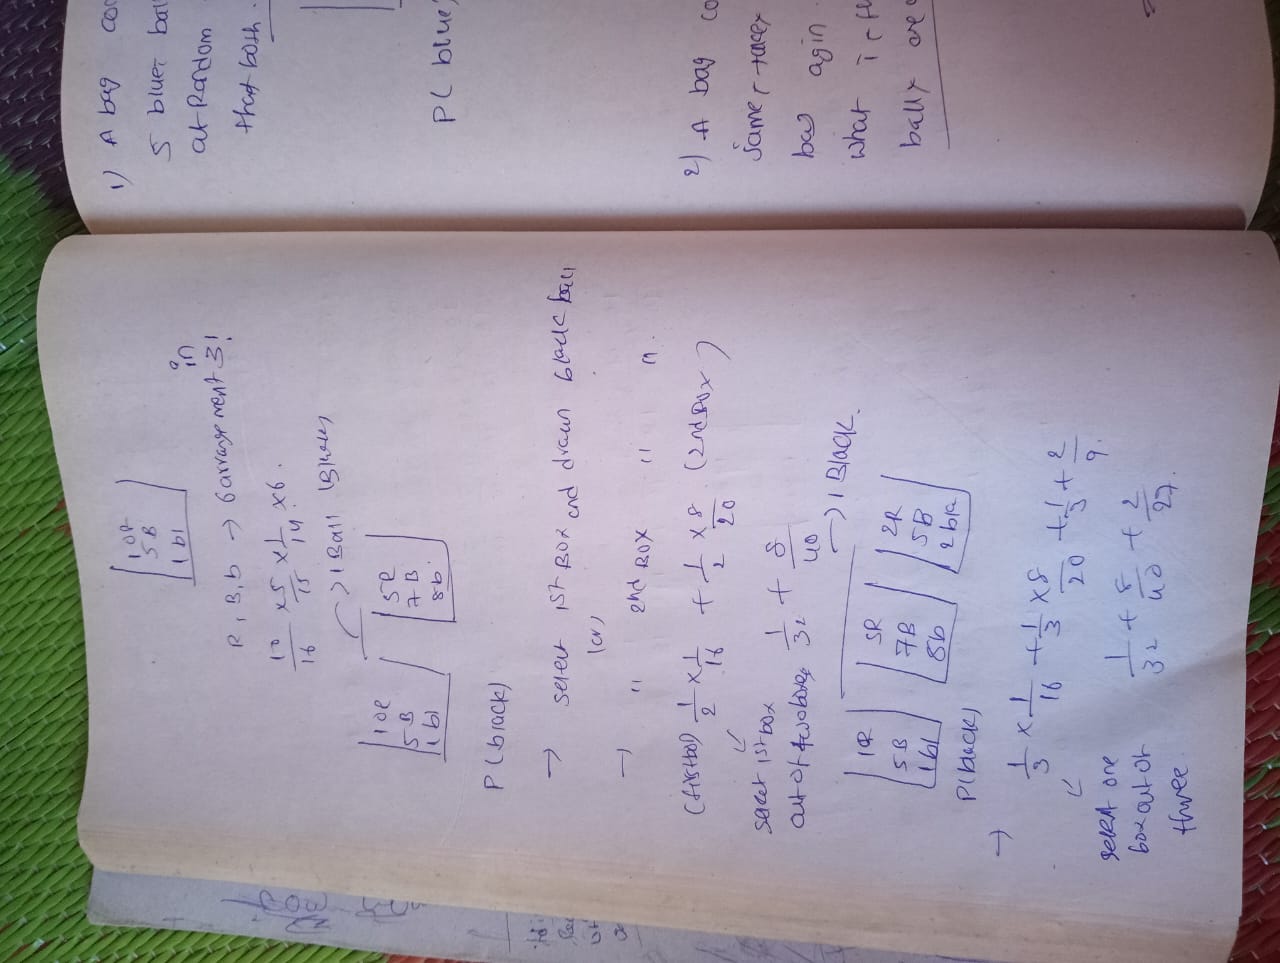 10R
5B
1bl
R, B, b → 6 arrangement in 3!
10/16 × 5/15 × 1/14 × 6.
→ 1 Ball Black
10R
5B
1bl
5R
7B
8b.
P(black)
→ select 1st Box and drawn black ball
(or)
→ " 2nd Box " ".
(first box) 1/2 × 1/16 + 1/2 × 8/20 (2nd Box)
select 1st box
out of two boxes 1/32 + 8/40
→ 1 Black.
1R
5B
1bl
5R
7B
8b
2R
5B
2bla
P(black)
→ 1/3 × 1/16 + 1/3 × 8/20 + 1/3 + 2/9.
select one
box out of
three
1/32 + 8/40 + 2/27.
1) A bag con
5 blues bal
at Random
that both.
P( blue
2) A bag co
same
bag agin
what is th
balls are